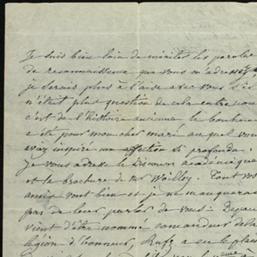 Je suis bien loin de mériter les paroles
de reconnaissance que vous m'adressez
je serais plus à l'aise avec vous s'il
n'était plus question de cela entre nous
c'est de l'histoire ancienne le bonheur
a été pour mon cher mari au quel vous
avez inspiré une affection si profonde.
je vous adresse le Discours académique
et la brochure de Mr Tout nos
amis vont bien et je ne manquerai
pas de leur parler de vous.
vient d'être nommé commandeur de la
légion d'honneur, a eu le plaisir